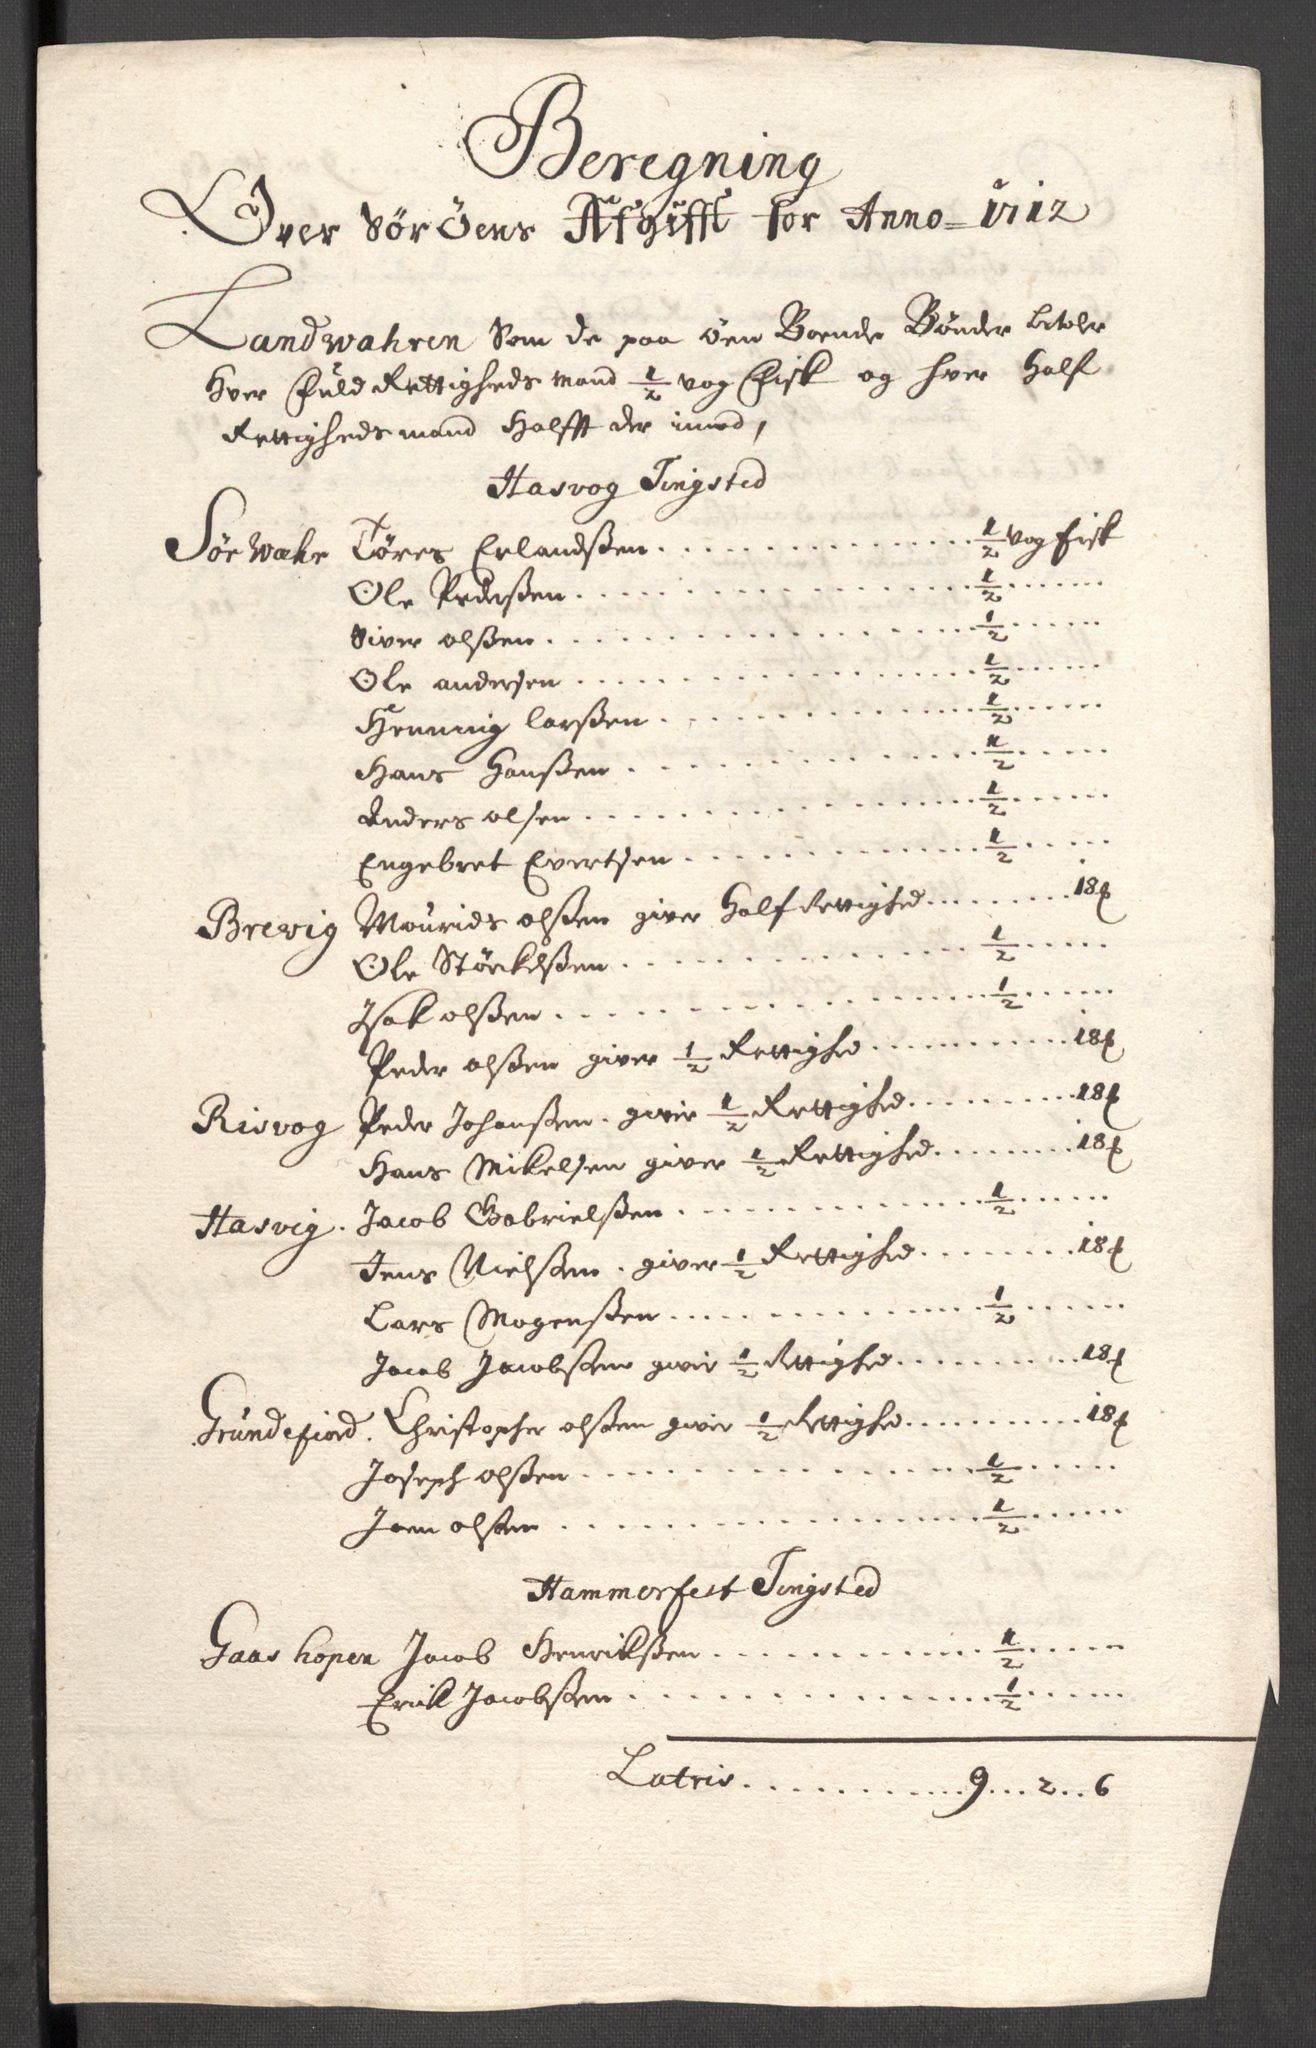 Beregning
Over Sør Öens Afgifft for Anno = 1712
Landwahren Som de paa öen Boende Bönder betaler
Hver Fuld Rettigheds mand 1/2 vog Fisk og hver Half
Rettigheds mand Halfft der imod,
Hasvog Tingsted
Sörwahr Töres Erlandßen 1/2 vog fisk
Ole Pederßen 1/2
Siver olßen 1/2
Ole andersen 1/2
Henning larßen 1/2
Hans Hanßen 1/2
Anders olsen 1/2
Engebret Evertsen 1/2
Brevig Mourids olßen giver Half Rettighed 18 ℔
Ole Störckelßen 1/2
Isak olßen 1/2
Peder olßen giver 1/2 Rettighed 18 ℔
Risvog Peder Johanßen giver 1/2 Rettighed 18 ℔
Hans Mikelsen giver 1/2 Rettighed 18 ℔
Hasvig. Jacob Gabrielßen 1/2
Jens Nielßen. giver 1/2 Rettighed 18 ℔
Lars Mogenßen 1/2
Jacob Jacobßen giver 1/2 Rettighed 18 ℔
Grundefiord. Christopher olßen giver 1/2 Rettighed 18 ℔
Joseph olßen 1/2
Joen olßen 1/2
Hammerfest Tingsted
Gaashopen Jacob Henrikßen 1/2
Erick Jacobßen 1/2
Latris 9 2 6